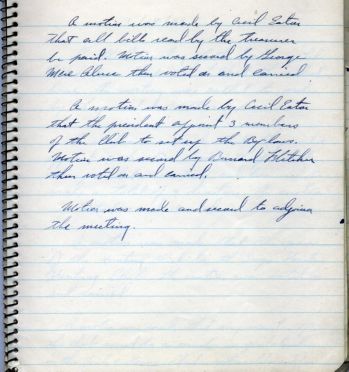 A motion was made by Cecil Eaton
that all bills read by the treasurer
be paid. Motion was second by George
then voted on and carried.
A motion was made by Cecil Eaton
that the president appoint 3 members
of the Club to set up the By-laws.
Motion was second by Bernard Fletcher
then voted on and carried.
Motion was made and second to adjourn
the meeting.